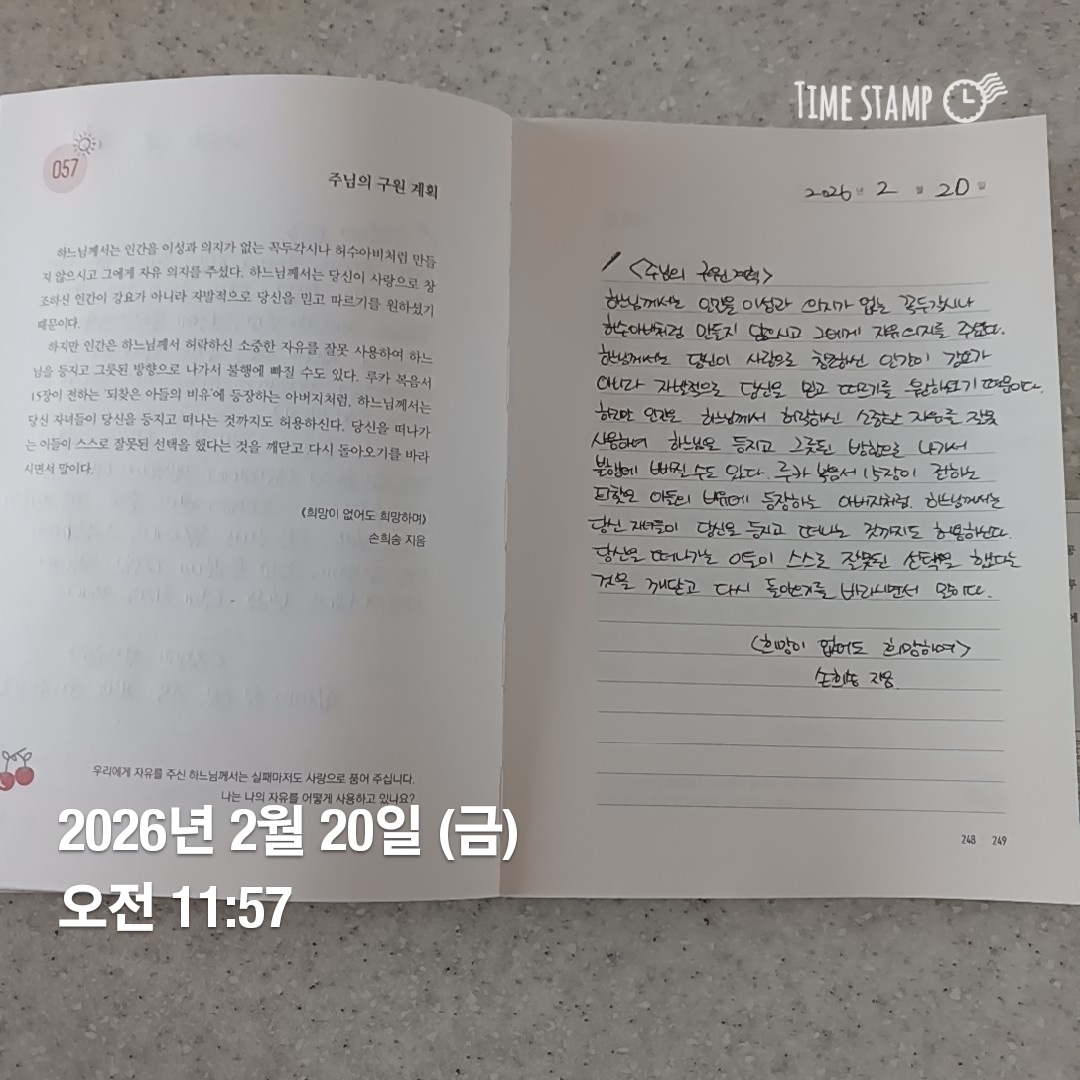 TIME STAMP
057
주님의 구원 계획
하느님께서는 인간을 이성과 의지가 없는 꼭두각시나 허수아비처럼 만들
지 않으시고 그에게 자유 의지를 주셨다. 하느님께서는 당신이 사랑으로 창
조하신 인간이 강요가 아니라 자발적으로 당신을 믿고 따르기를 원하셨기
때문이다.
하지만 인간은 하느님께서 허락하신 소중한 자유를 잘못 사용하여 하느
님을 등지고 그릇된 방향으로 나가서 불행에 빠질 수도 있다. 루카 복음서
15장이 전하는 '되찾은 아들의 비유'에 등장하는 아버지처럼, 하느님께서는
당신 자녀들이 당신을 등지고 떠나는 것까지도 허용하신다. 당신을 떠나가
는 이들이 스스로 잘못된 선택을 했다는 것을 깨닫고 다시 돌아오기를 바라
시면서 말이다.
《희망이 없어도 희망하며》
손희송 지음
우리에게 자유를 주신 하느님께서는 실패마저도 사랑으로 품어 주십니다.
나는 나의 자유를 어떻게 사용하고 있나요?
2026년 2월 20일
<주님의 구원 계획>
하느님께서는 인간을 이성과 의지가 없는 꼭두각시나
허수아비처럼 만들지 않으시고 그에게 자유의지를 주셨다.
하느님께서는 당신이 사랑으로 창조하신 인간이 강요가
아니라 자발적으로 당신을 믿고 따르기를 원하셨기 때문이다.
하지만 인간은 하느님께서 허락하신 소중한 자유를 잘못
사용하여 하느님을 등지고 그릇된 방향으로 나가서
불행에 빠질 수도 있다. 루카 복음서 15장이 전하는
되찾은 아들의 비유에 등장하는 아버지처럼, 하느님께서는
당신 자녀들이 당신을 등지고 떠나는 것까지도 허용하신다.
당신을 떠나가는 이들이 스스로 잘못된 선택을 했다는
것을 깨닫고 다시 돌아오기를 바라시면서 말이다.
<희망이 없어도 희망하며>
손희송 지음
248 249
2026년 2월 20일 (금)
오전 11:57